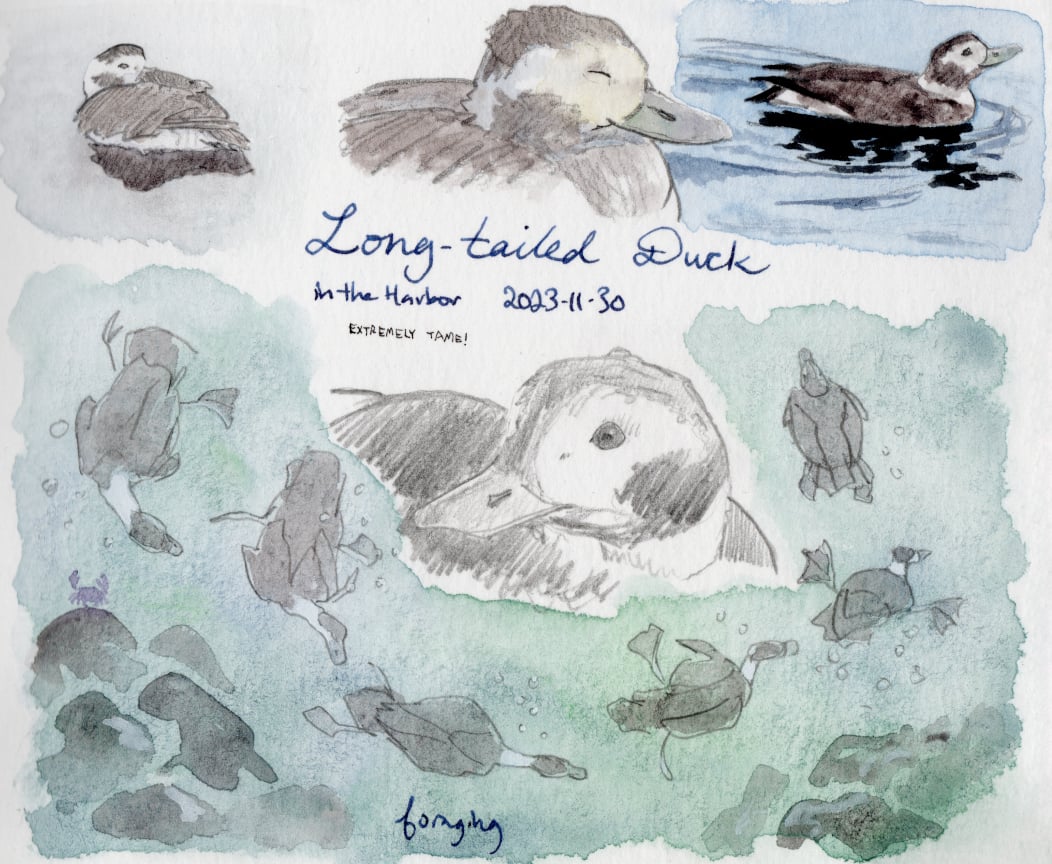 Long-tailed Duck
in the Harbor 2023-11-30
EXTREMELY TAME!
foraging